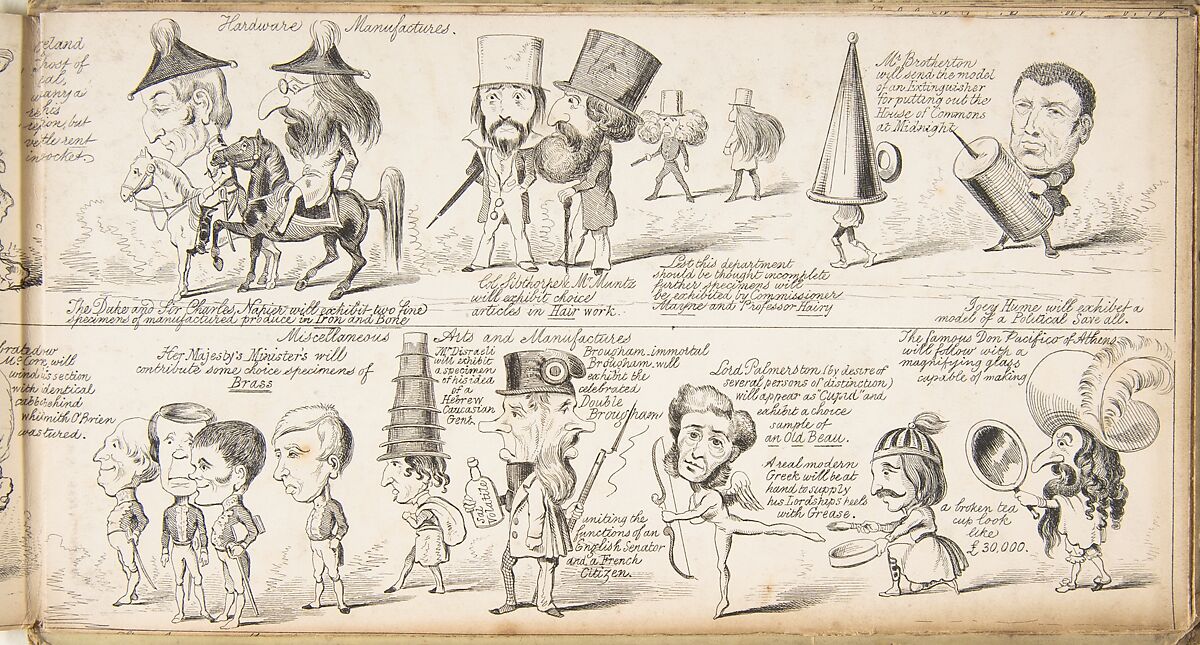 Hardware Manufactures.
eland
rost of
cal,
wany a
his
ion, but
rent
in rocket
The Duke and Sir Charles Napier will exhibit two fine
specimens of manufactured produce in Iron and Bone
Col. Sibthorpe & Mr Muntz
will exhibit choice
articles in Hair work.
Lest this department
should be thought incomplete
further specimens will
be exhibited by Commissioner
Mayne and Professor Hairy
Mr Brotherton
will send the model
of an Extinguisher
for putting out the
House of Commons
at Midnight
Joey Hume will exhibit a
model of a Political Save all.
Miscellaneous Arts and Manufactures
brated
McCore, will
section
with identical
cabbi behind
whi Smith O'Brien
was tured.
Her Majesty's Ministers will
contribute some choice specimens of
Brass
Mr Disraeli
will exhibit
a specimen
of his idea
of a
Hebrew
Caucasian
Gent.
Brougham-immortal
Brougham-will
exhibit the
celebrated
Double
Brougham
Sal
Volatile
uniting the
functions of an
English Senator
and a French
Citizen.
Lord Palmerston (by desire of
several persons of distinction)
will appear as Cupid and
exhibit a choice
sample of
an Old Beau.
A real modern
Greek will be at
hand to supply
his Lordships heels
with Grease.
The famous Don Pacifico of Athens
will follow with a
magnifying glass
capable of making
a broken tea
cup look
like
£30,000.